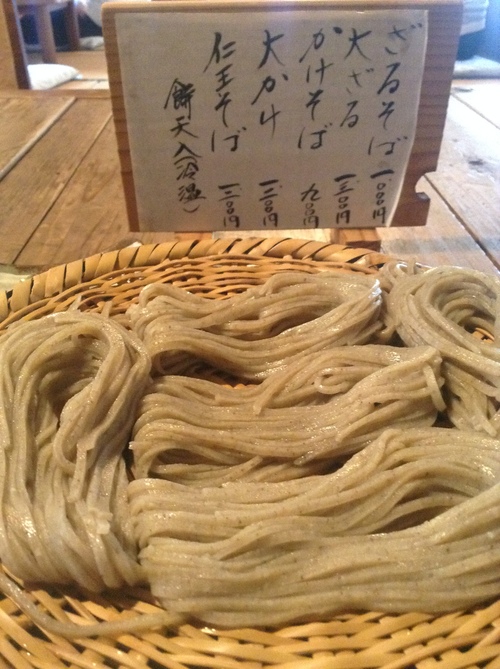 ざるそば 一、〇〇〇円
大ざる 一、三〇〇円
かけそば 九〇〇円
大かけ 一、二〇〇円
仁王そば 一、二〇〇円
餅天入(冷温)